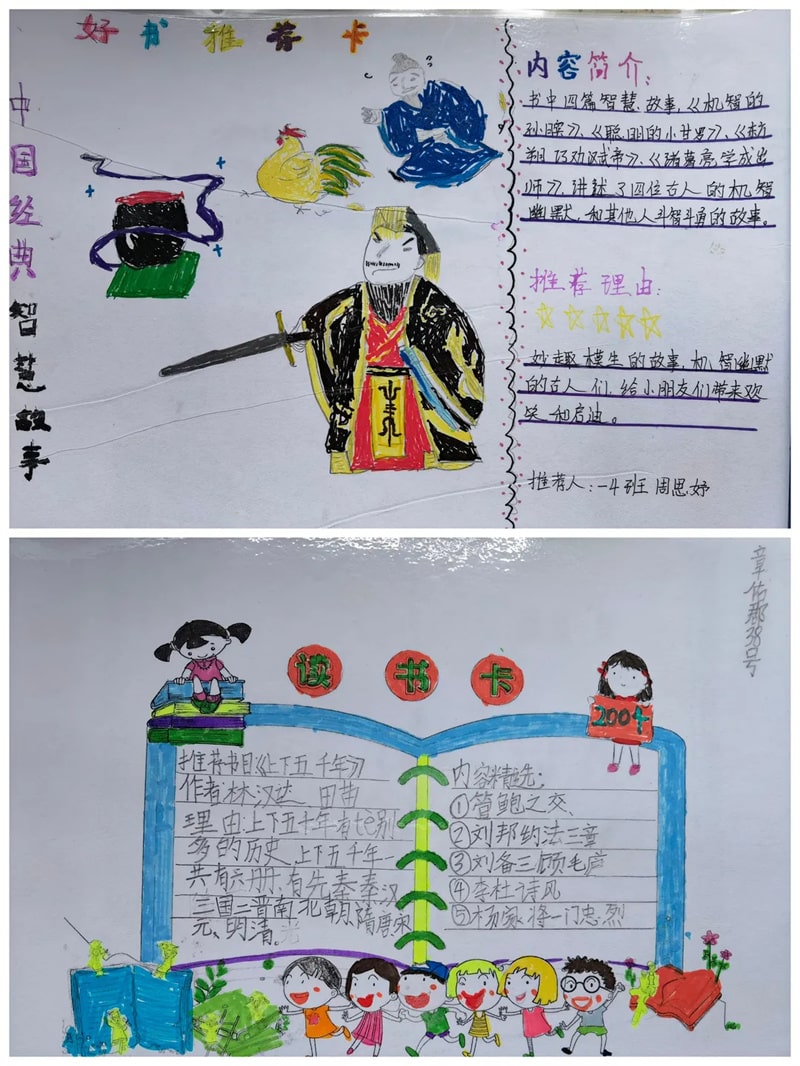 好书推荐卡
中国经典智慧故事
内容简介：
书中四篇智慧故事，《机智的
孙膑》、《聪明的小甘罗》、《东方
朔巧劝武帝》、《诸葛亮学成出
师》，讲述了四位古人的机智
幽默，和其他人斗智斗勇的故事。
推荐理由：
妙趣横生的故事，机智幽默
的古人们，给小朋友们带来欢
笑和启迪。
推荐人：一4班 周思妤
章佑郡38号
读书卡
2004
推荐书目《上下五千年》
作者林汉达 田
理由：上下五千年有tè别
多的历史，上下五千年一
共有六册，有先秦秦汉
三国二晋南北朝，隋唐宋
元、明清。
内容精选：
①管鲍之交、
②刘邦约法三章
③刘备三顾毛庐
④李杜诗风
⑤杨家将一门忠烈